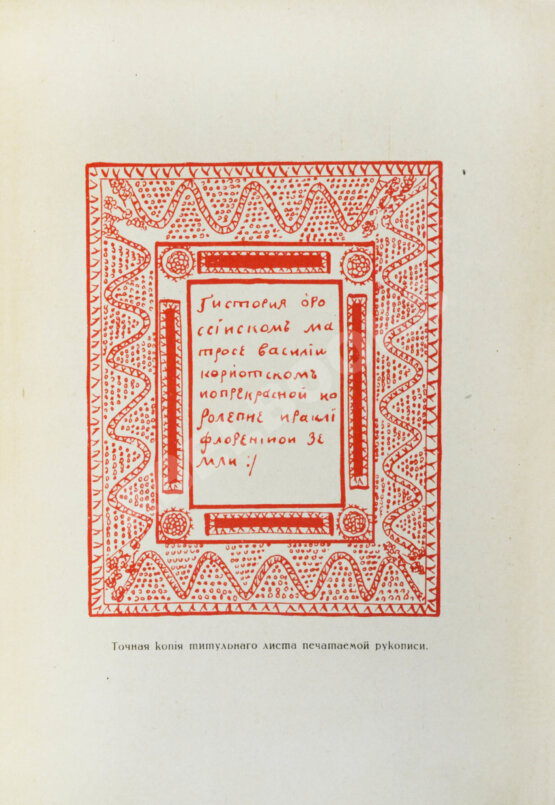 Гистория оро
ссїискомъ ма
тросе василїи
корїотскомъ
ипрекрасной ко
ролевне ираклїі
флоренїиои зе
мли :/
Точная копія титульнаго листа печатаемой рукописи.